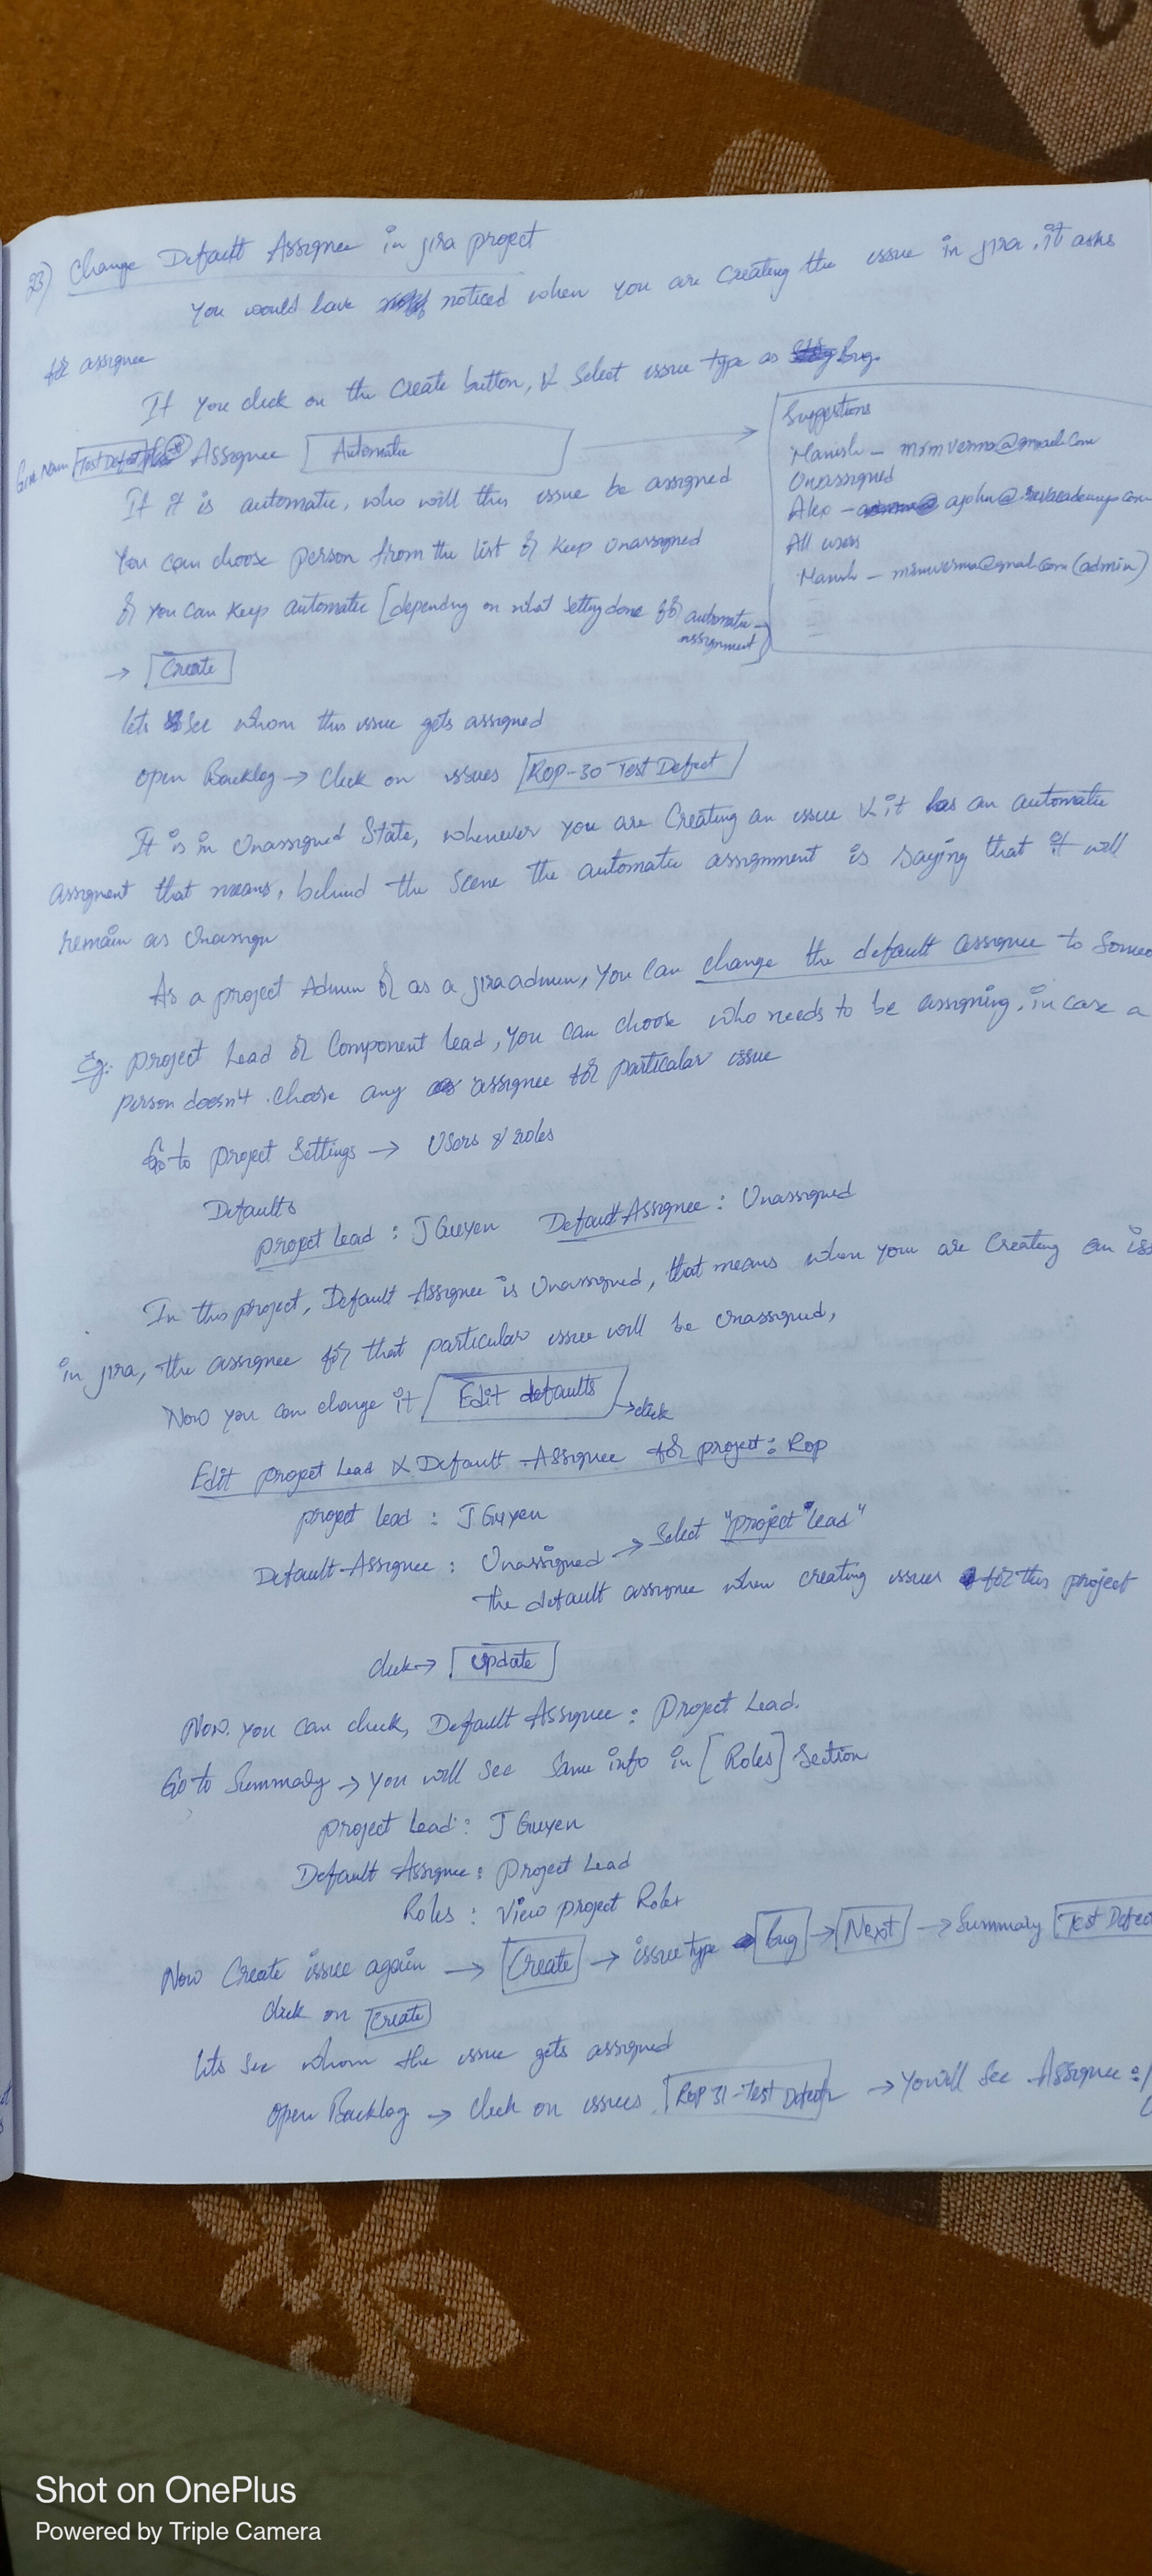 23) Change Default Assignee in jira project
You would have noticed when you are Creating the issue in jira, it asks
for assignee
If you click on the Create button, & Select issue type as Bug.
Give Name Test Defect Assignee Automatic
Suggestions
Manish - mrmverma@gmail.com
Unassigned
Alex - ajohn@
All users
Manish - mrmverma@gmail.com (admin)
If it is automatic, who will this issue be assigned
You can choose person from the list or keep unassigned
or you can keep automatic [depending on what setting done for automatic-
assignment]
→ Create
lets See whom this issue gets assigned
open Backlog → click on issues ROP-30-Test Defect
It is in Unassigned State, whenever you are Creating an issue & it has an automatic
assignment that means, behind the scene the automatic assignment is saying that it will
remain as Unassign
As a project Admin or as a jira admin, you can change the default assignee to
Eg: project Lead or Component lead, you can choose who needs to be assigning, in case a
person doesn't choose any assignee for particular issue
Go to project Settings → Users & roles
Defaults
project Lead : J Guyen Default Assignee : Unassigned
In this project, Default Assignee is Unassigned, that means when you are Creating an
in jira, the assignee for that particular issue will be Unassigned,
Now you can change it Edit defaults → click
Edit project Lead & Default-Assignee for project: Rop
project lead : J Guyen
Default-Assignee : Unassigned → Select "project lead"
The default assignee when creating issues for this project
click → Update
Now. you can check, Default Assignee : Project Lead.
Go to Summary → you will see same info in [Roles] section
project Lead : J Guyen
Default Assignee : Project Lead
Roles : View project Roles
Now Create issue again → Create → issue type Bug → Next → Summary Test
click on Create
lets see whom the issue gets assigned
open Backlog → click on issues ROP 31-Test Defect → You'll see Assignee :
Shot on OnePlus
Powered by Triple Camera